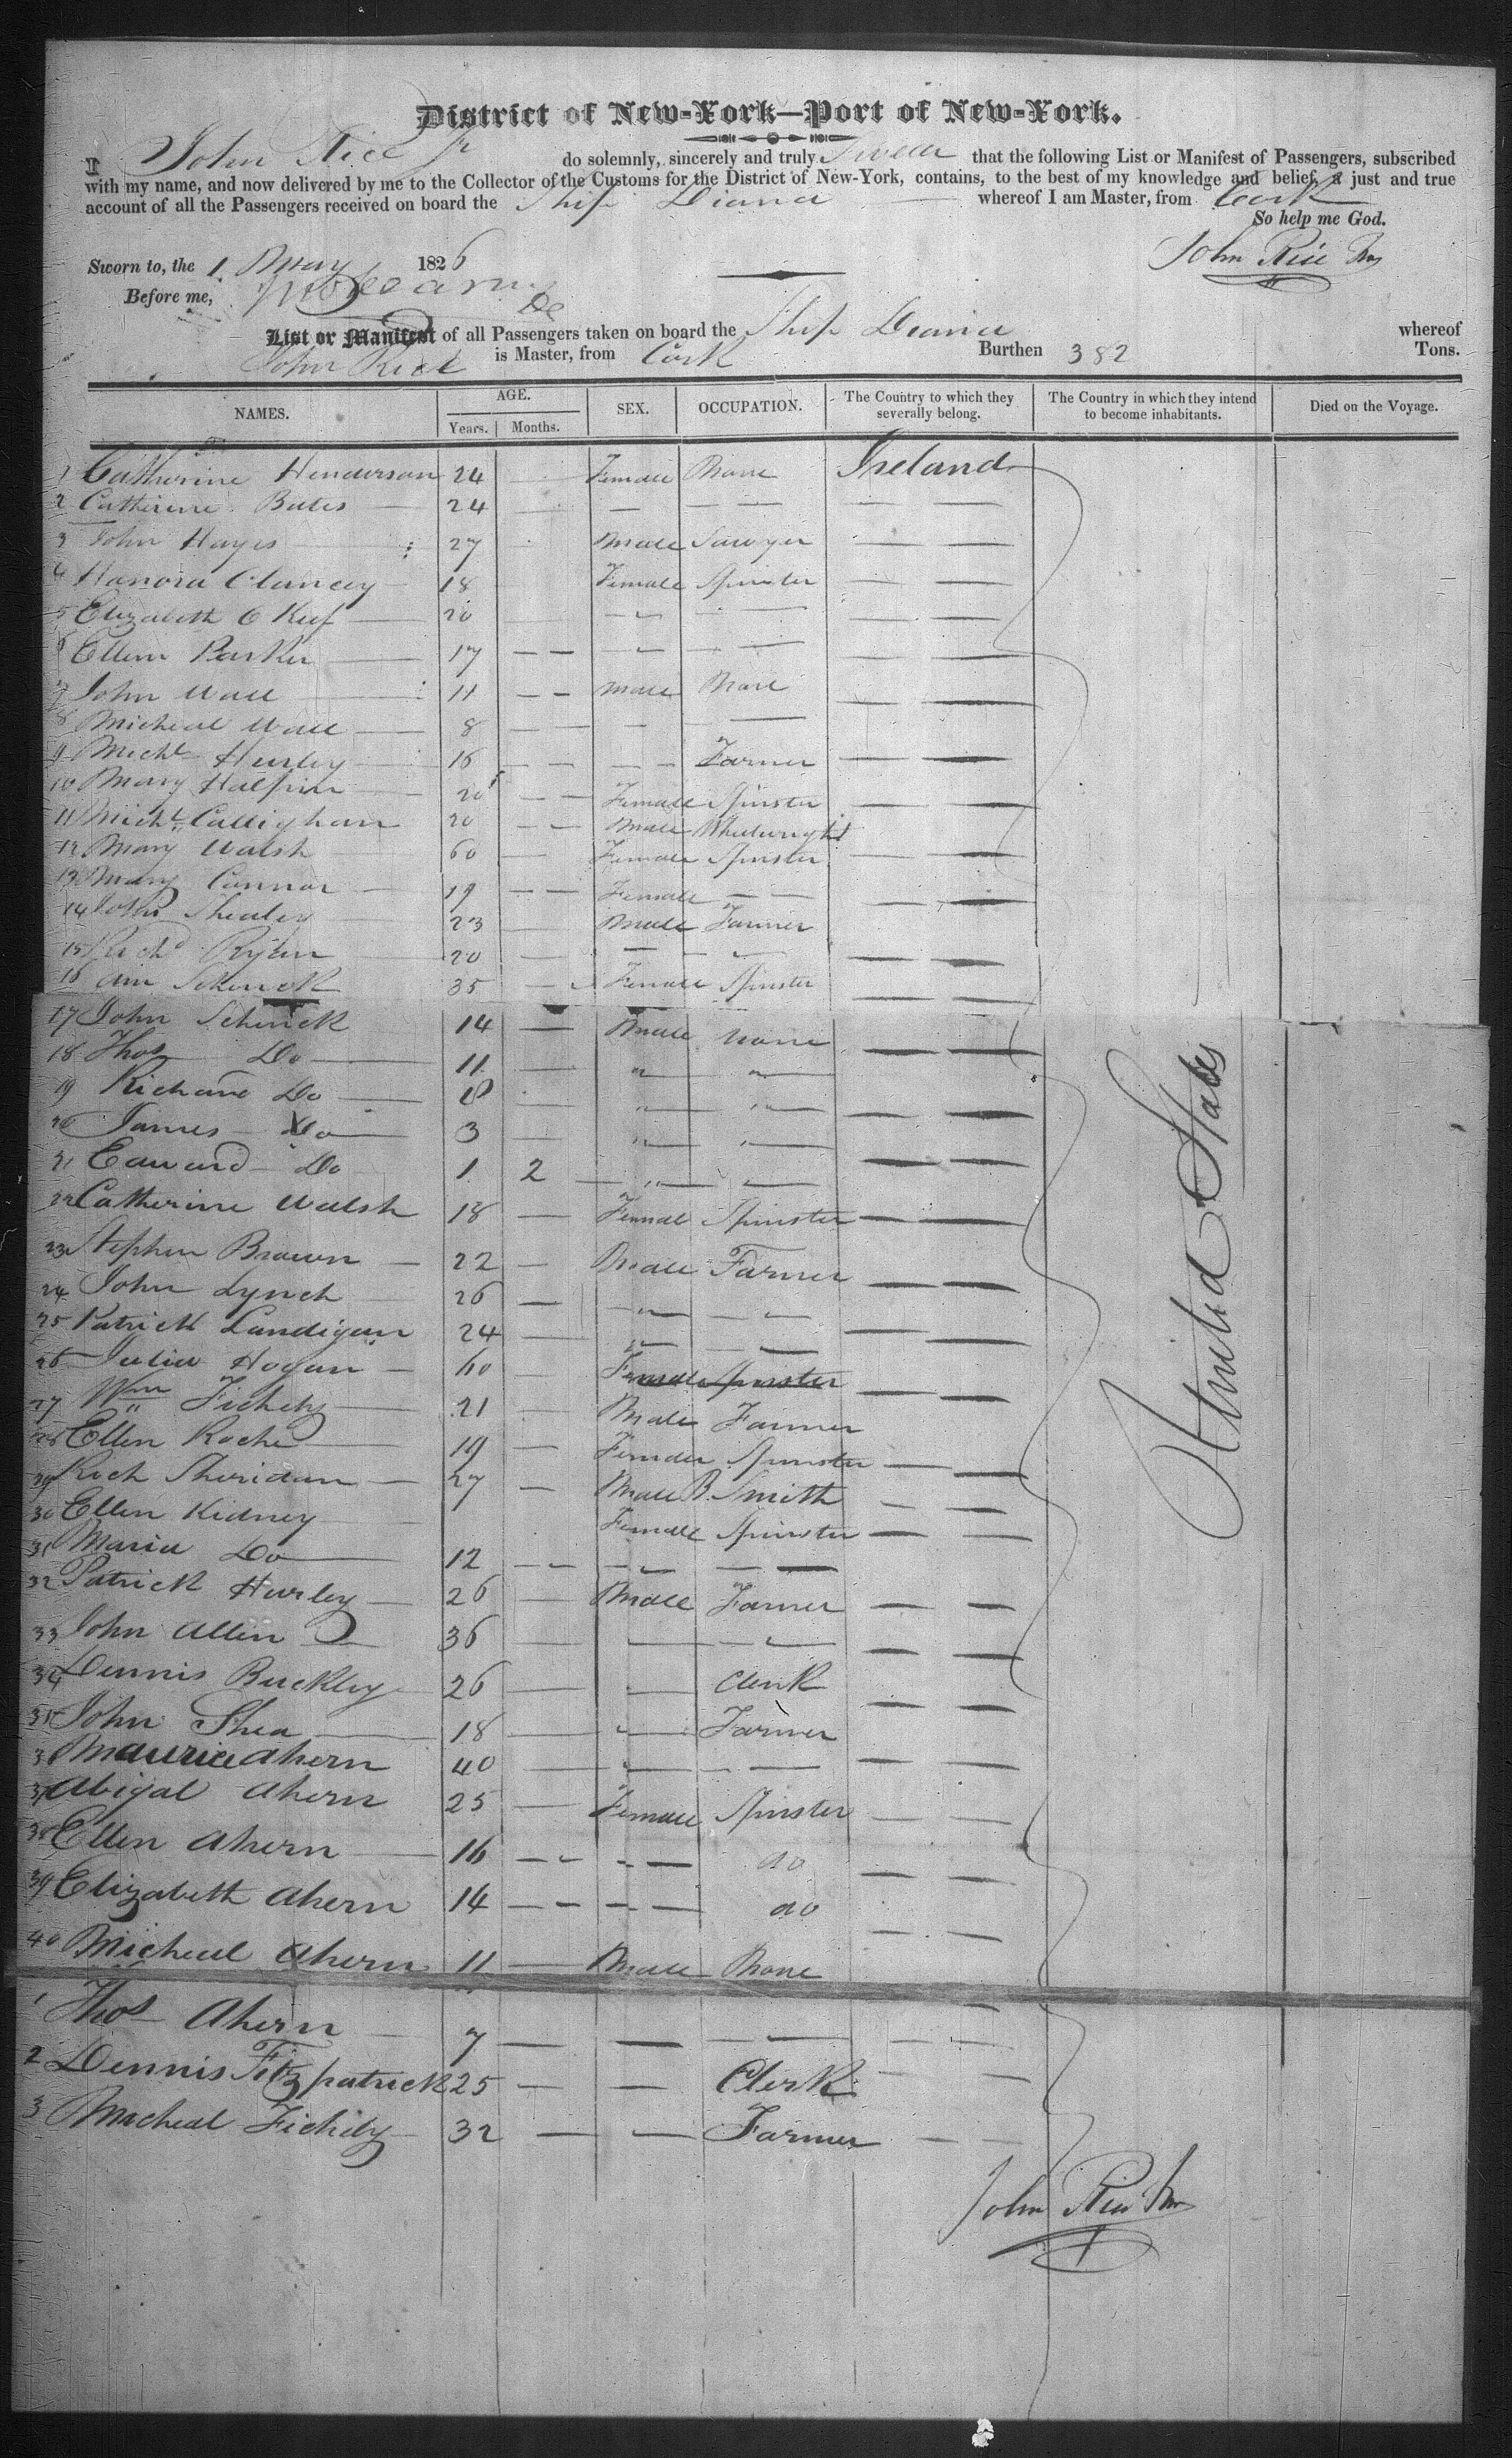 District of New-York—Port of New-York.
I John Rice Jr do solemnly, sincerely and truly Swear that the following List or Manifest of Passengers, subscribed
with my name, and now delivered by me to the Collector of the Customs for the District of New-York, contains, to the best of my knowledge and belief, a just and true
account of all the Passengers received on board the Ship Diana whereof I am Master, from Cork
So help me God.
Sworn to, the 1 May 1826 John Rice Jnr
Before me,
List or Manifest of all Passengers taken on board the Ship Diana whereof
John Rice is Master, from Cork Burthen 382 Tons.
NAMES. AGE. SEX. OCCUPATION. The Country to which they severally belong. The Country in which they intend to become inhabitants. Died on the Voyage.
Years. Months.
1 Catherine Henderson 24 Female None Ireland
2 Catherine Bates 24
3 John Hayes 27 Male Sawyer
4 Hanora Clancey 18 Female Spinster
5 Elizabeth O Keef 20
6 Ellen Parker 17
7 John Wall 11 Male None
8 Micheal Wall 8
9 Michl Hurley 16 Farmer
10 Mary Halpin 20 Female Spinster
11 Michl Callighan 20 Male Wheelwright
12 Mary Walsh 60 Female Spinster
13 Mary Connor 19 Female
14 John Shealey 23 Male Farmer
15 Richd Ryan 20
16 Ann Schenck 35 Female Spinster
17 John Schenck 14 Male None
18 Thos Do 11 " "
19 Richard Do " "
20 James Do 3 " "
21 Edward Do 1 2 "
22 Catherine Walsh 18 Female Spinster
23 Stephen Brown 22 Male Farmer
24 John Lynch 26 "
25 Patrick Landigan 24 "
26 Julia Hogan 40 Female Spinster
27 Wm Fichely 21 Male Farmer
28 Ellen Roche 19 Female Spinster
29 Rich Sheridan 27 Male B. Smith
30 Ellen Kidney Female Spinster
31 Maria Do 12
32 Patrick Hurley 26 Male Farmer
33 John Allen 36
34 Dennis Buckley 26 Clerk
35 John Shea 18 Farmer
36 Maurice Ahern 40
37 Abigal Ahern 25 Female Spinster
38 Ellen Ahern 16 do
39 Elizabeth Ahern 14 do
40 Micheal Ahern 11 Male None
1 Thos Ahern 7
2 Dennis Fitzpatrick 25 Clerk
3 Micheal Fichily 32 Farmer
United States
John Rice Jnr